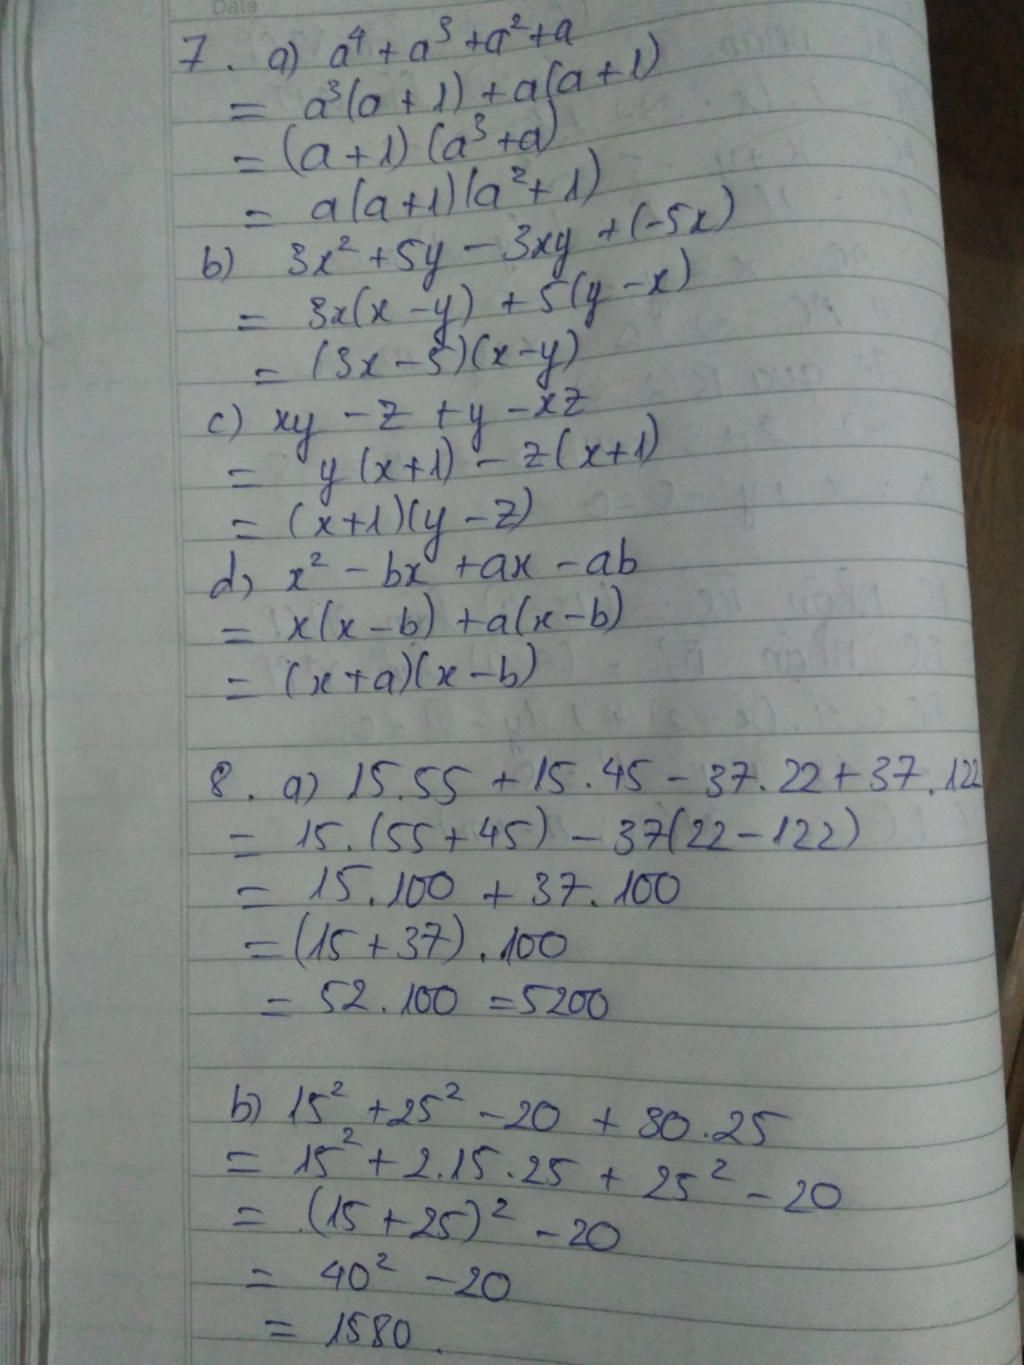 Data
7. a) a⁴ + a³ + a² + a
= a³(a + 1) + a(a + 1)
= (a + 1) (a³ + a)
= a(a + 1)(a² + 1)
b) 3x² + 5y - 3xy + (-5x)
= 3x(x - y) + 5(y - x)
= (3x - 5)(x - y)
c) xy - z + y - xz
= y(x + 1) - z(x + 1)
= (x + 1)(y - z)
d) x² - bx + ax - ab
= x(x - b) + a(x - b)
= (x + a)(x - b)
8. a) 15.55 + 15.45 - 37.22 + 37.122
= 15.(55 + 45) - 37(22 - 122)
= 15.100 + 37.100
= (15 + 37).100
= 52.100 = 5200
b) 15² + 25² - 20 + 30.25
= 15² + 2.15.25 + 25² - 20
= (15 + 25)² - 20
= 40² - 20
= 1580.